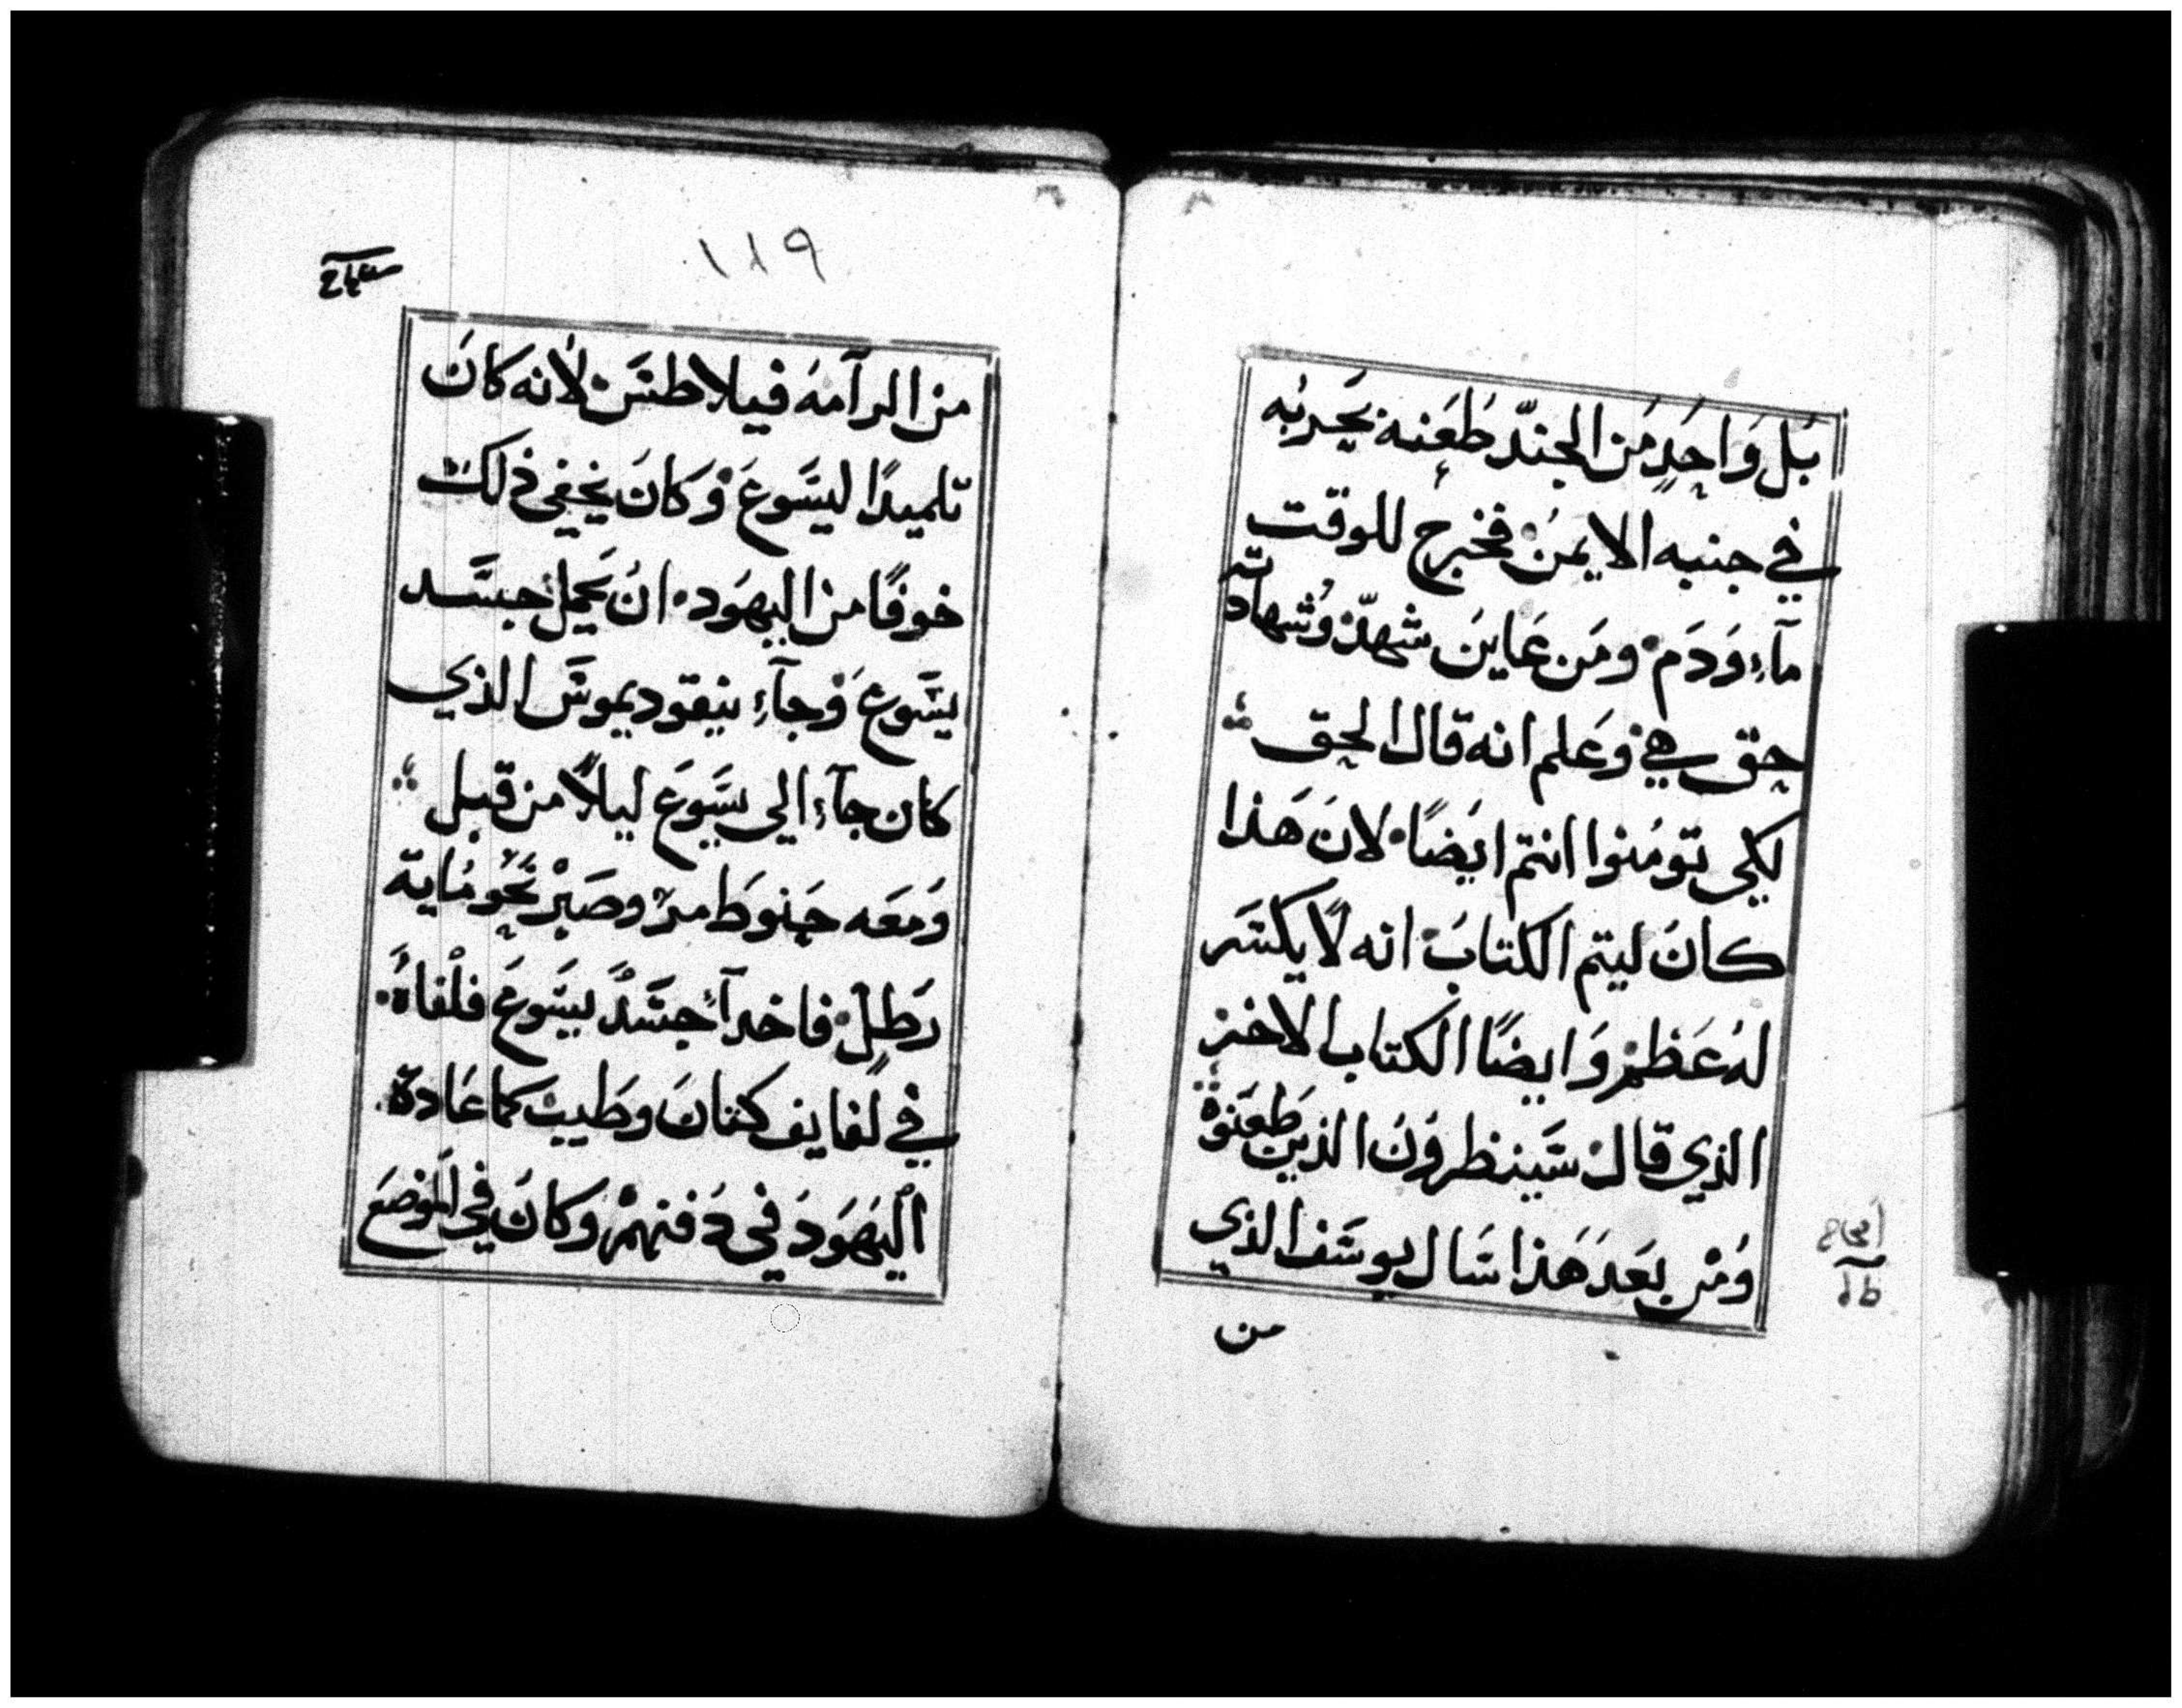 بل وَاحِدٍ مَن الجندّ طَعَنه بحربُه
في جنبه الايمن فخرج للوقت
مآءٍ وَدَم ومَن عَاينَ شهدّ وشهادته
حق هي وَعلم انه قال الحق
لكي تومنوا انتم ايضًا لانَ هَذا
كانَ ليتم الكتابُ انه لاً يكسَر
لهُ عَظم وَايضًا الكتاب الاخر
الذي قال سَينظرونَ الذين طعَنوهْ
وَمْن بعَد هَذا سَال يوسَف الذي
من
١٨٩
من الرآمه فيلاطسَ لأنه كانَ
تلميدًا ليسَوعَ وَكانَ يخفي ذلك
خوفًا من اليهَود انُ يَحمل جسَد
يسَوعَ وَجآءِ نيقوديموسَ الذي
كان جآءِ الي يسَوعَ ليلاً من قبل
وَمعَه حَنوطَ مرّ وصَبْر نَحو مُاية
رَطلٍ فاخدآ جسَدَ يسَوعَ فلْفاهُ
في لفايف كتانَ وطَيبَ كما عَادة
اليَهَودَ في دَفنهمْ وكانَ في الموضعَ